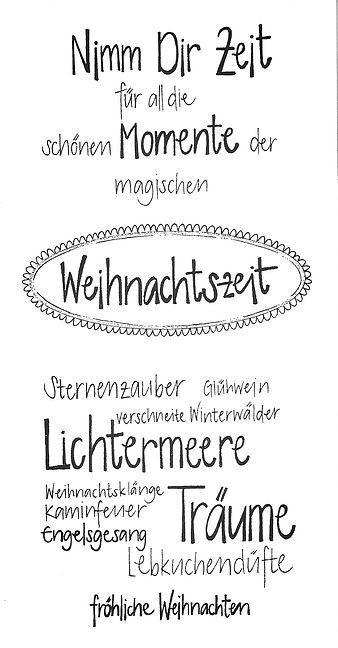 Nimm Dir Zeit
für all die
schönen Momente der
magischen
Weihnachtszeit
Sternenzauber Glühwein
verschneite Winterwälder
Lichtermeere
Weihnachtsklänge
Kaminfeuer Träume
Engelsgesang
Lebkuchendüfte
fröhliche Weihnachten